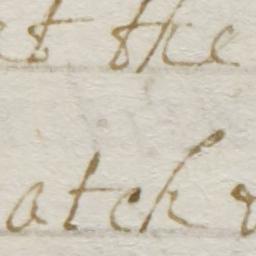 et the
atch